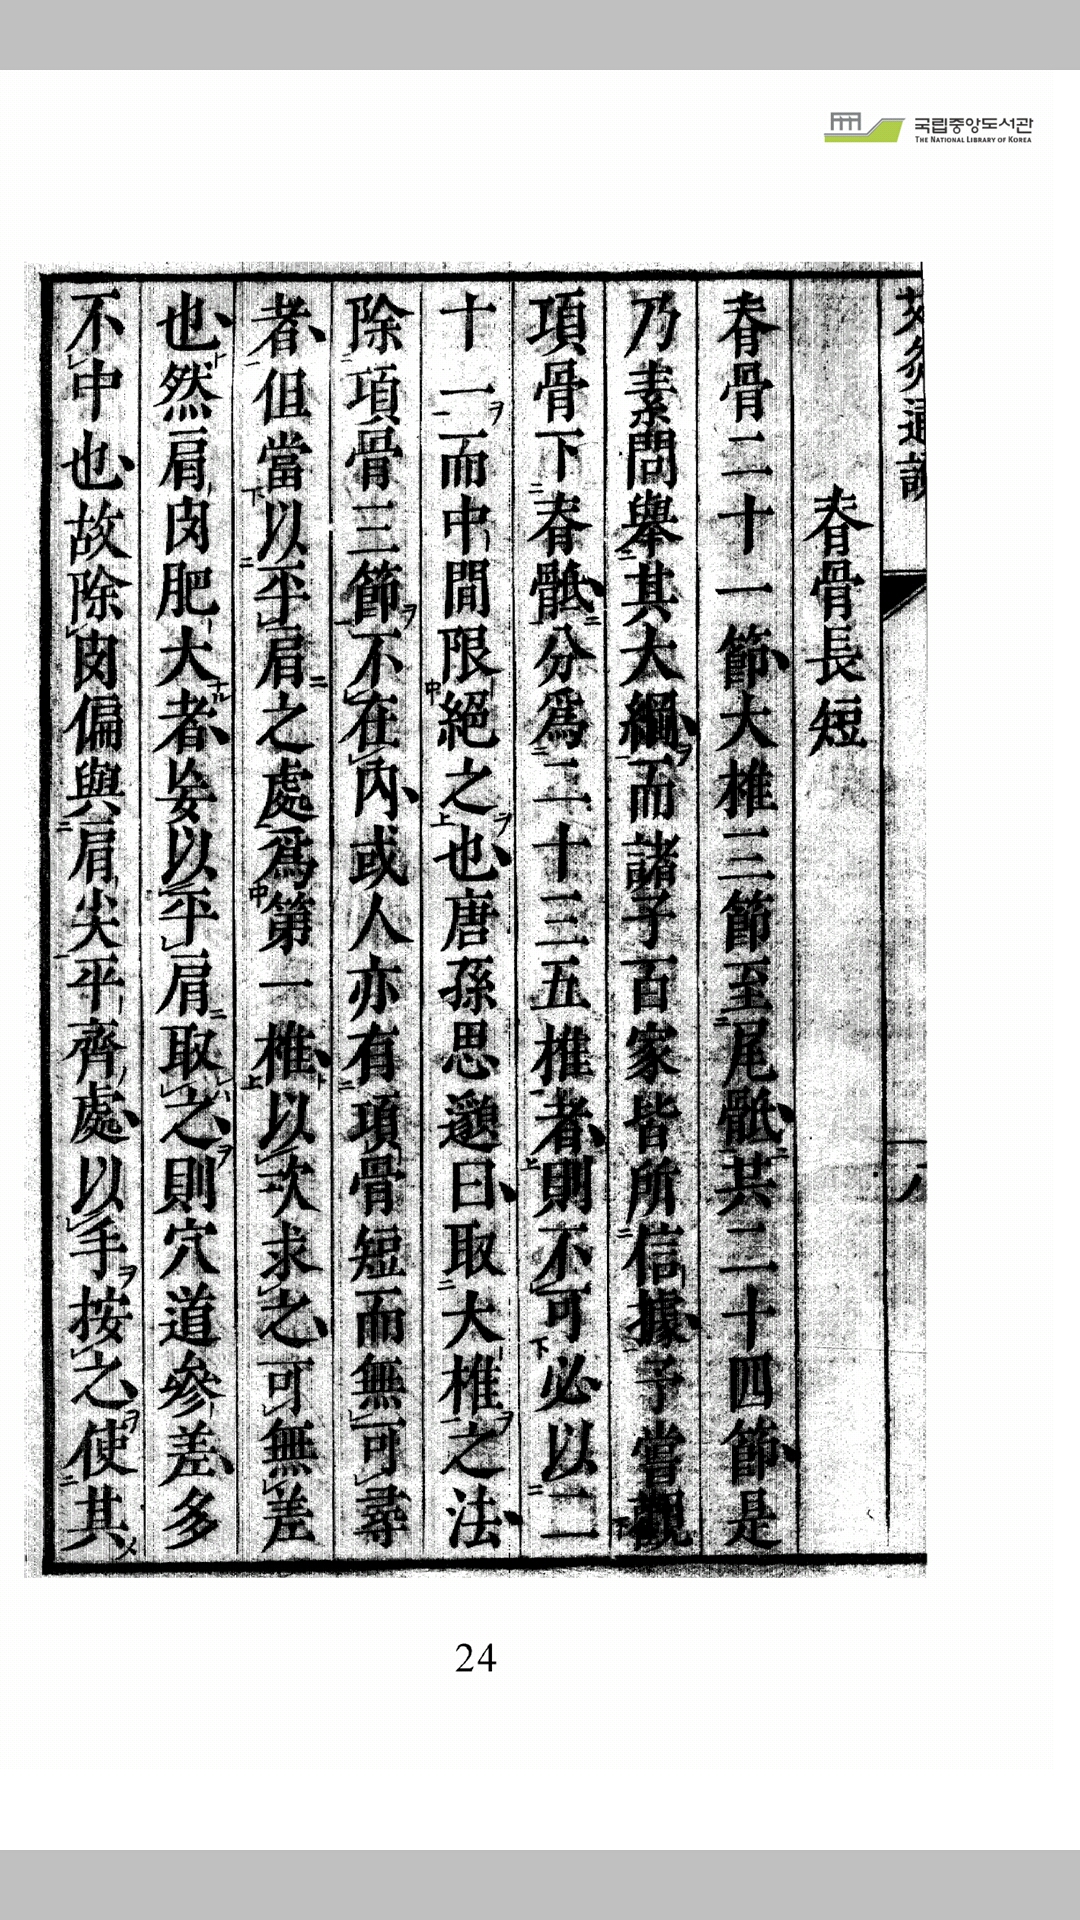 국립중앙도서관
THE NATIONAL LIBRARY OF KOREA
艾灸通說
脊骨長短
脊骨二十一節大椎三節至尾骶共二十四節是
乃素問舉其大綱而諸子百家皆所信據予嘗觀
項骨下脊骶分爲二十三五椎者則不可必以二
十一而中間限絕之也唐孫思邈曰取大椎之法
除項骨三節不在內或人亦有項骨短而無可尋
者但當以平肩之處爲第一椎以次求之可無差
也然肩肉肥大者妄以平肩取之則穴道參差多
不中也故除肉偏與肩尖平齊處以手按之使其
24